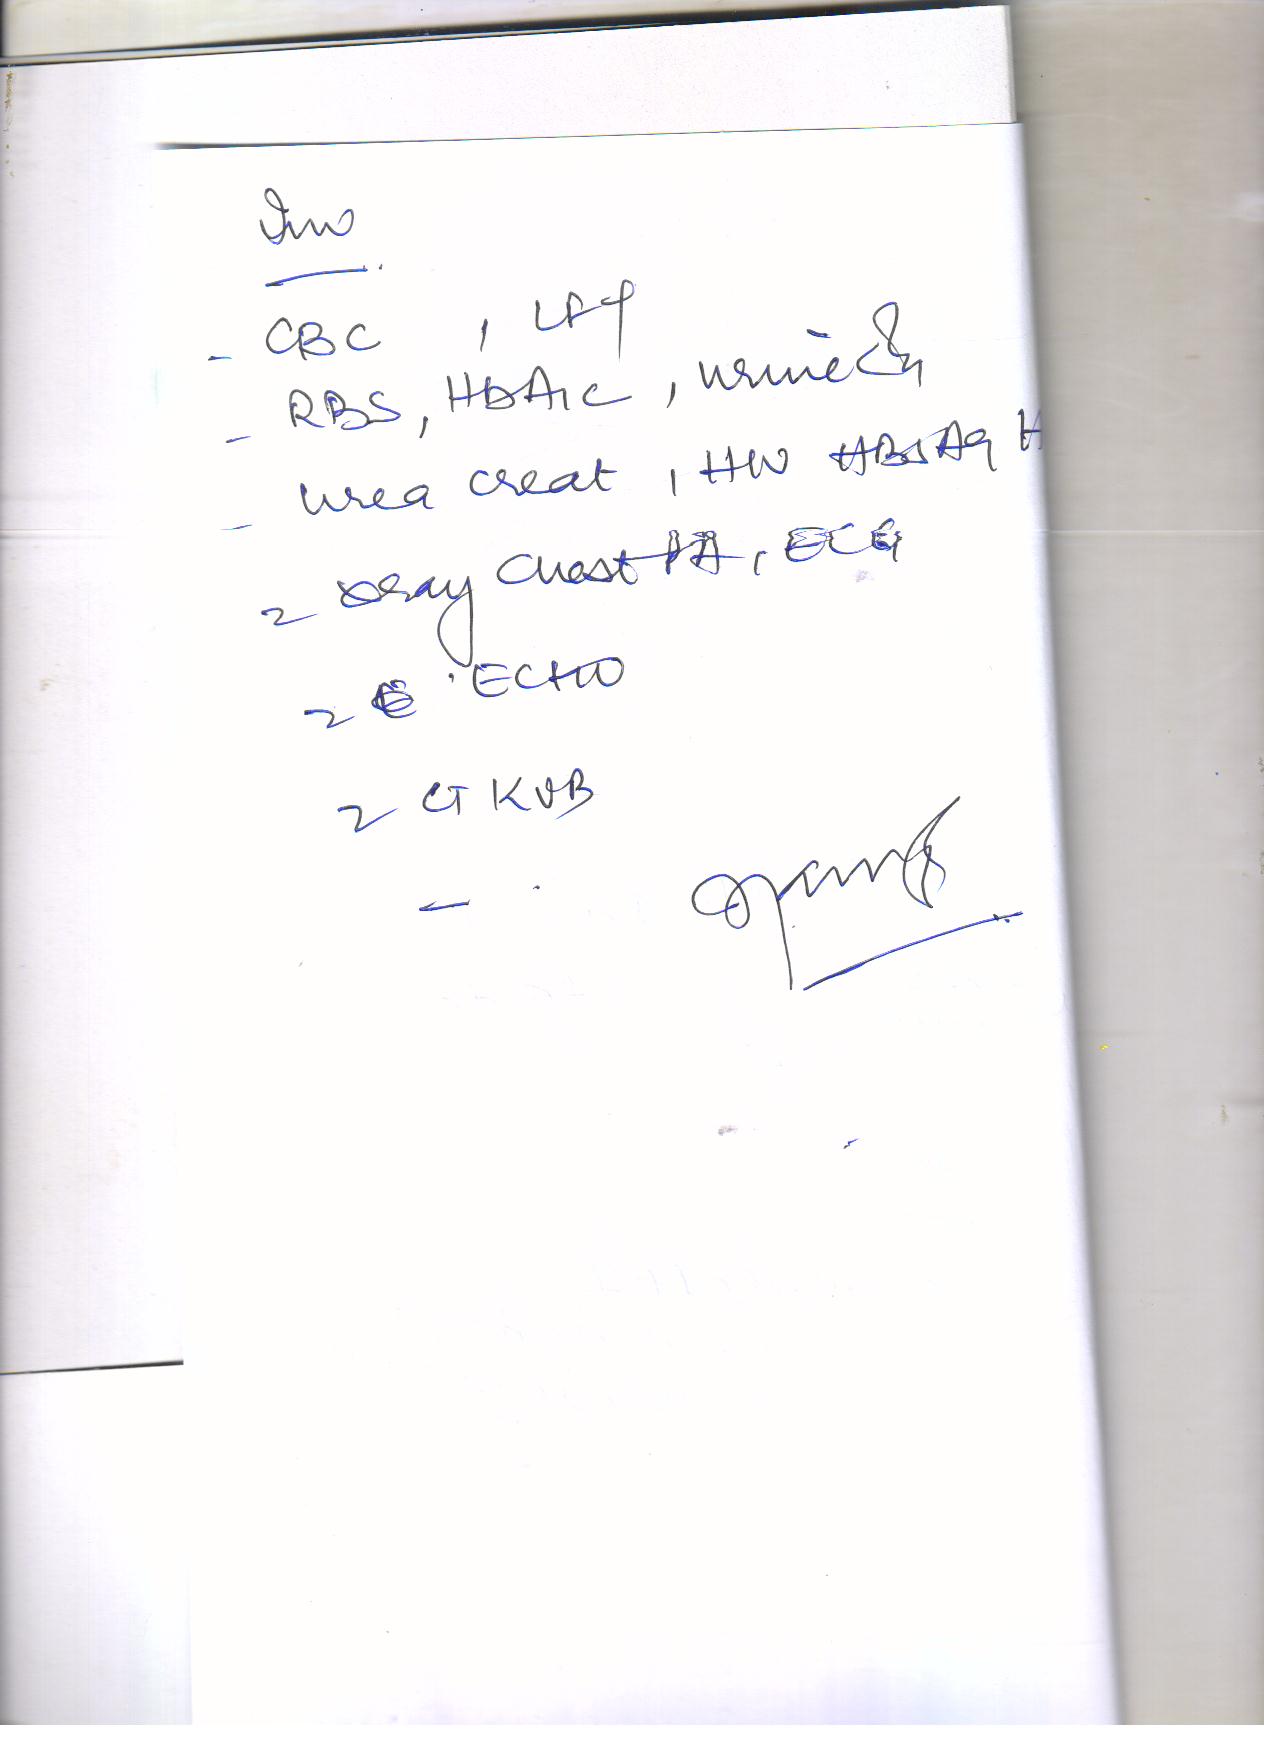 Inv
- CBC , LFT
- RBS, HbA1c , urine
- urea creat , HIV HBsAg H
- Xray Chest PA, ECG
- ECHO
- CT KUB
-